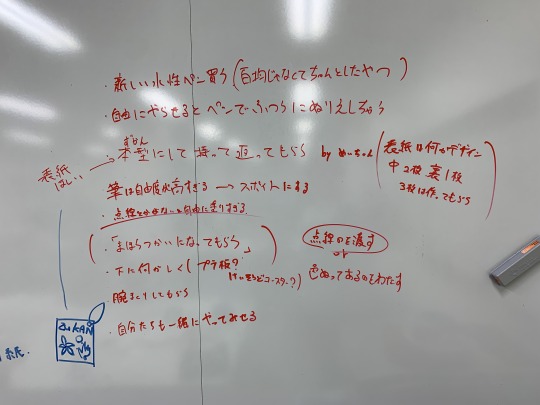 ・新しい水性ペン買う(百均じゃなくてちゃんとしたやつ)
・自由にやらせるとペンでふつうにぬりえしちゃう
ずかん
・本型にして持って返ってもらう by めーちゃん
表紙は何かデザイン
中2枚 裏1枚
3枚は作ってもらう
表紙
ほしい
筆は自由度が高すぎる → スポイトにする
・点線とかがないと自由に走りすぎる
・「まほうつかいになってもらう」
点線のを渡す
or
色ぬってあるのをわたす
・下に何かしく(プラ板?
コースター?)
・腕まくりしてもらう
・自分たちも一緒にやってみせる
ZUKAN
紙.